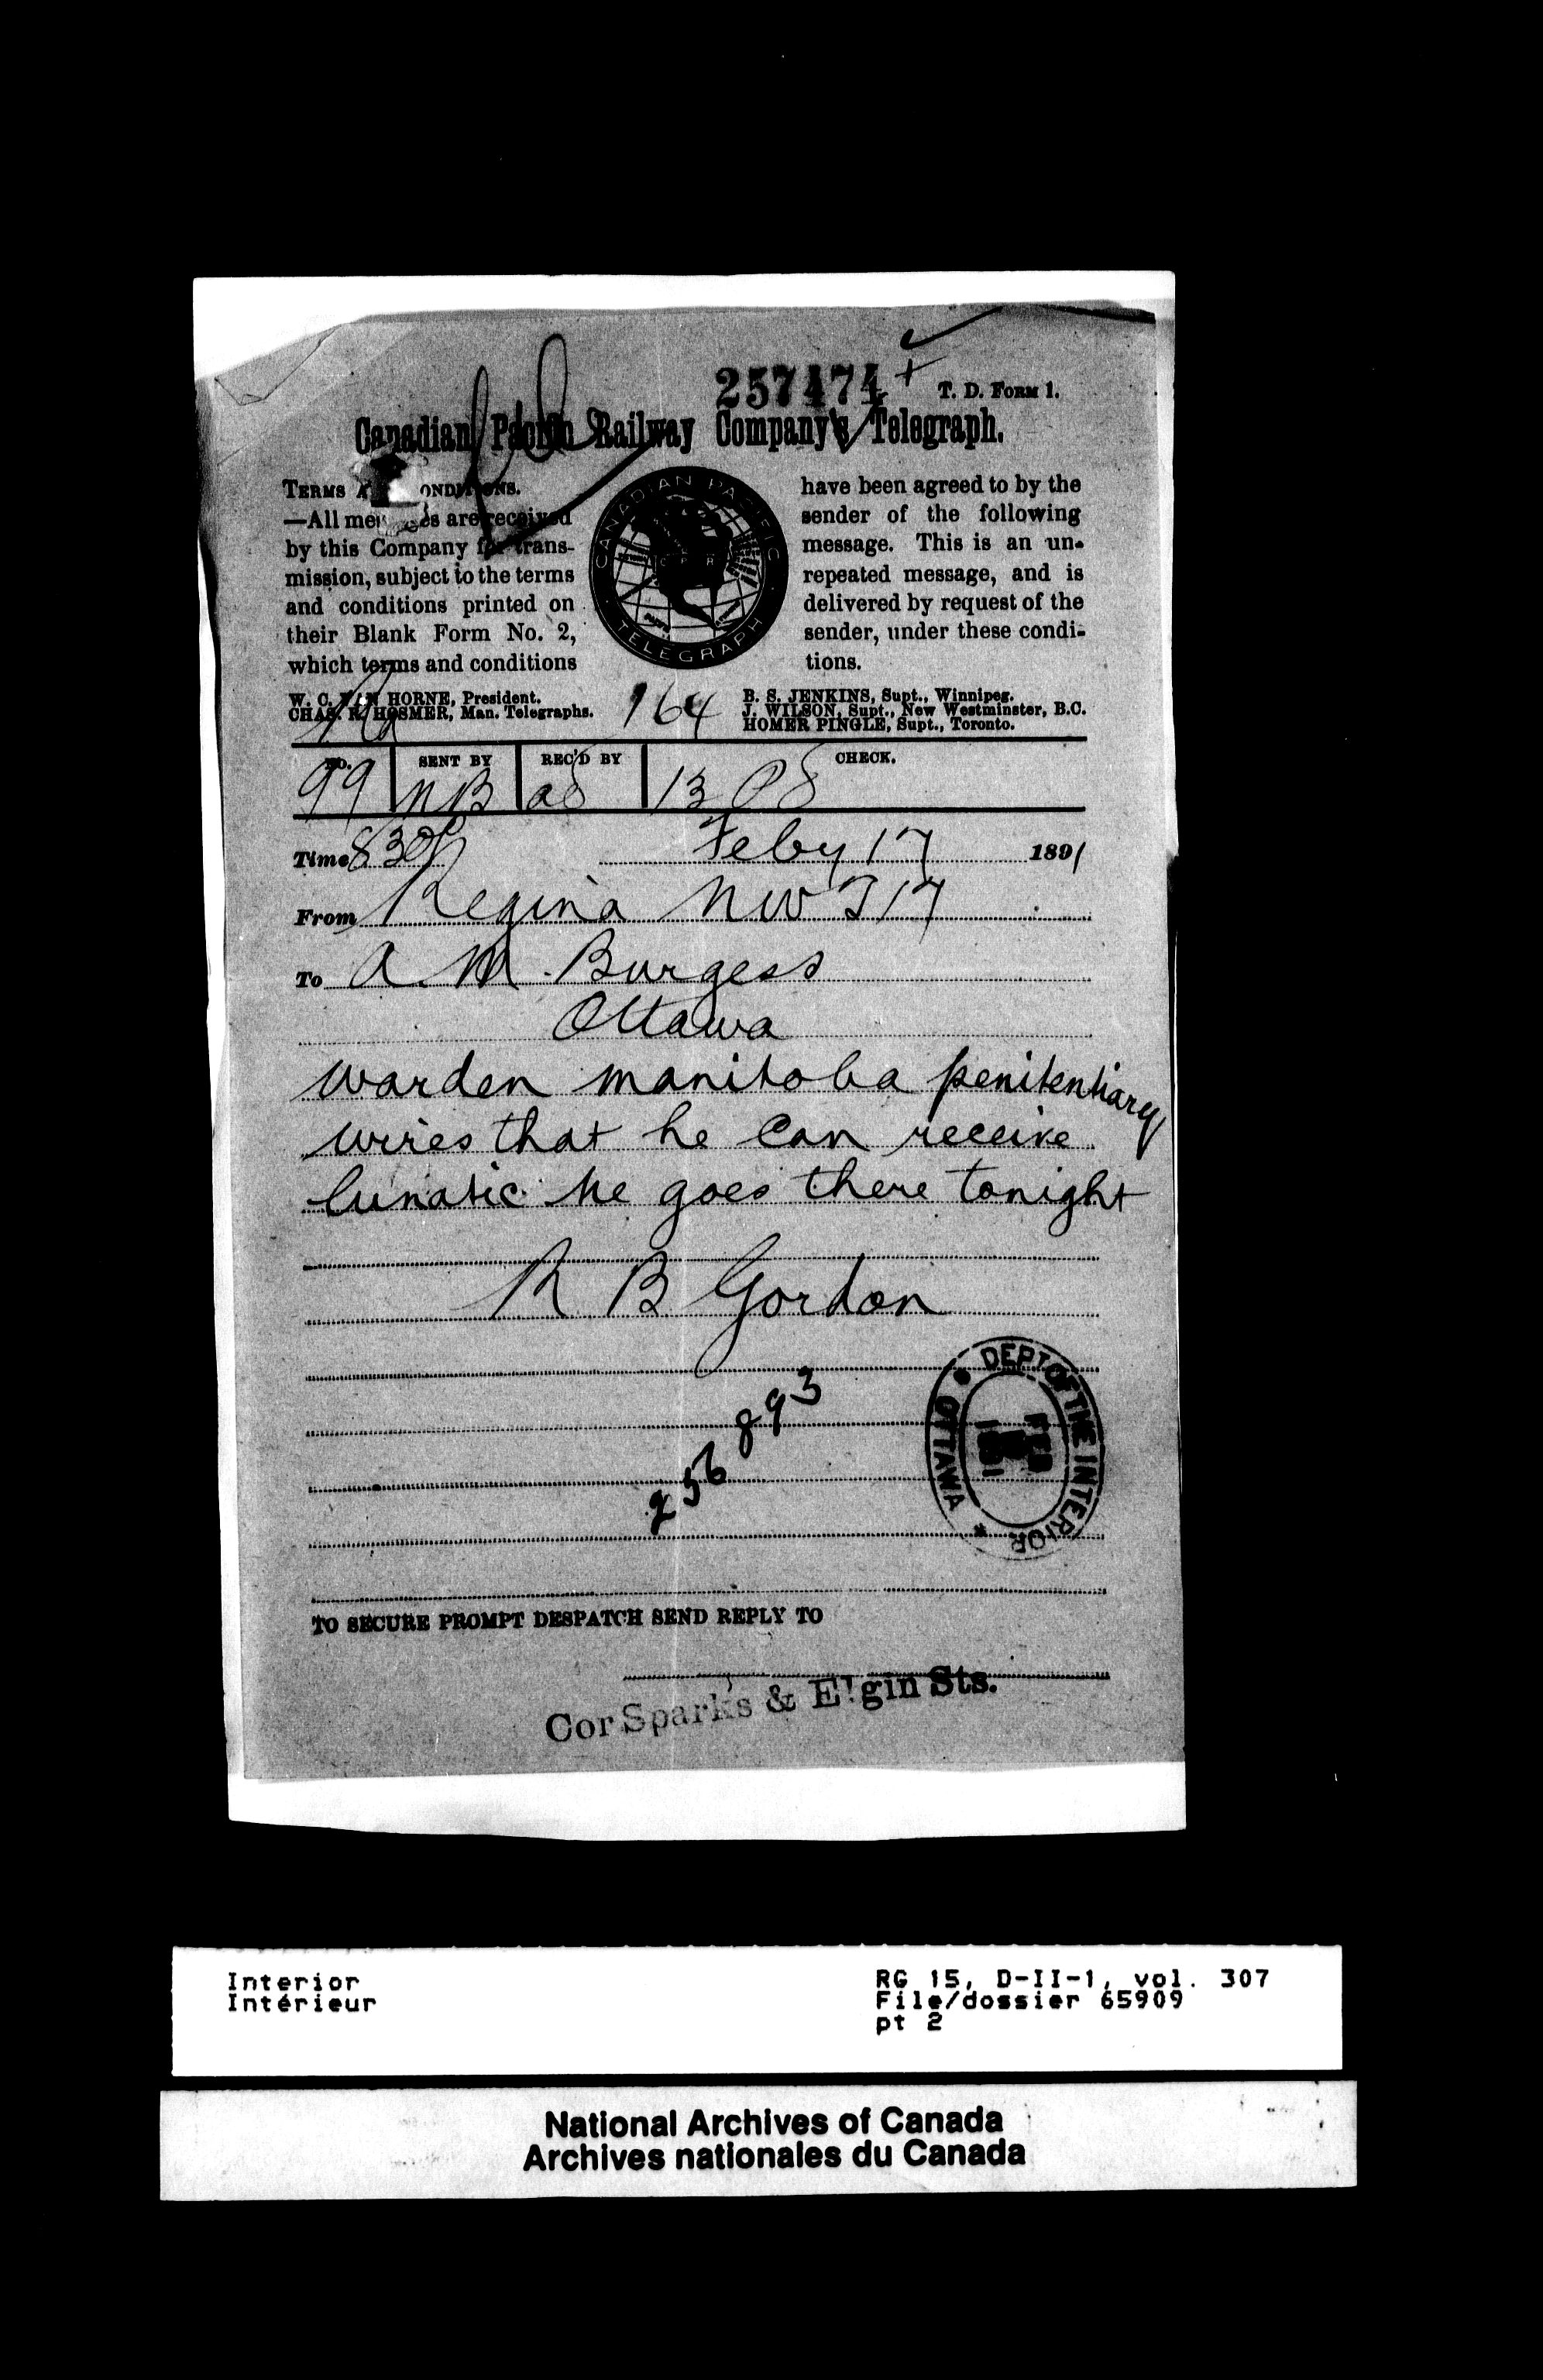 257474
T. D. FORM 1.
Canadian Pacific Railway Company's Telegraph.
TERMS
CONDITIONS.
—All messages are received
by this Company for trans-
mission, subject to the terms
and conditions printed on
their Blank Form No. 2,
which terms and conditions
CANADIAN PACIFIC
C P R
TELEGRAPH
have been agreed to by the
sender of the following
message. This is an un-
repeated message, and is
delivered by request of the
sender, under these condi-
tions.
W. C. VAN HORNE, President.
CHAS. R. HOSMER, Man. Telegraphs.
164
B. S. JENKINS, Supt., Winnipeg.
J. WILSON, Supt., New Westminster, B.C.
HOMER PINGLE, Supt., Toronto.
NO. SENT BY REC'D BY CHECK.
99 NB 13
Time 830p Feby 17 1891
From Regina NWT 17
To A. M. Burgess
Ottawa
warden manitoba penitentiary
wires that he can receive
lunatic he goes there tonight
R B Gordon
256 893
DEPT OF THE INTERIOR
OTTAWA
FEB
1891
TO SECURE PROMPT DESPATCH SEND REPLY TO
Cor Sparks & Elgin Sts.
Interior
Intérieur
RG 15, D-II-1, vol. 307
File/dossier 65909
pt 2
National Archives of Canada
Archives nationales du Canada